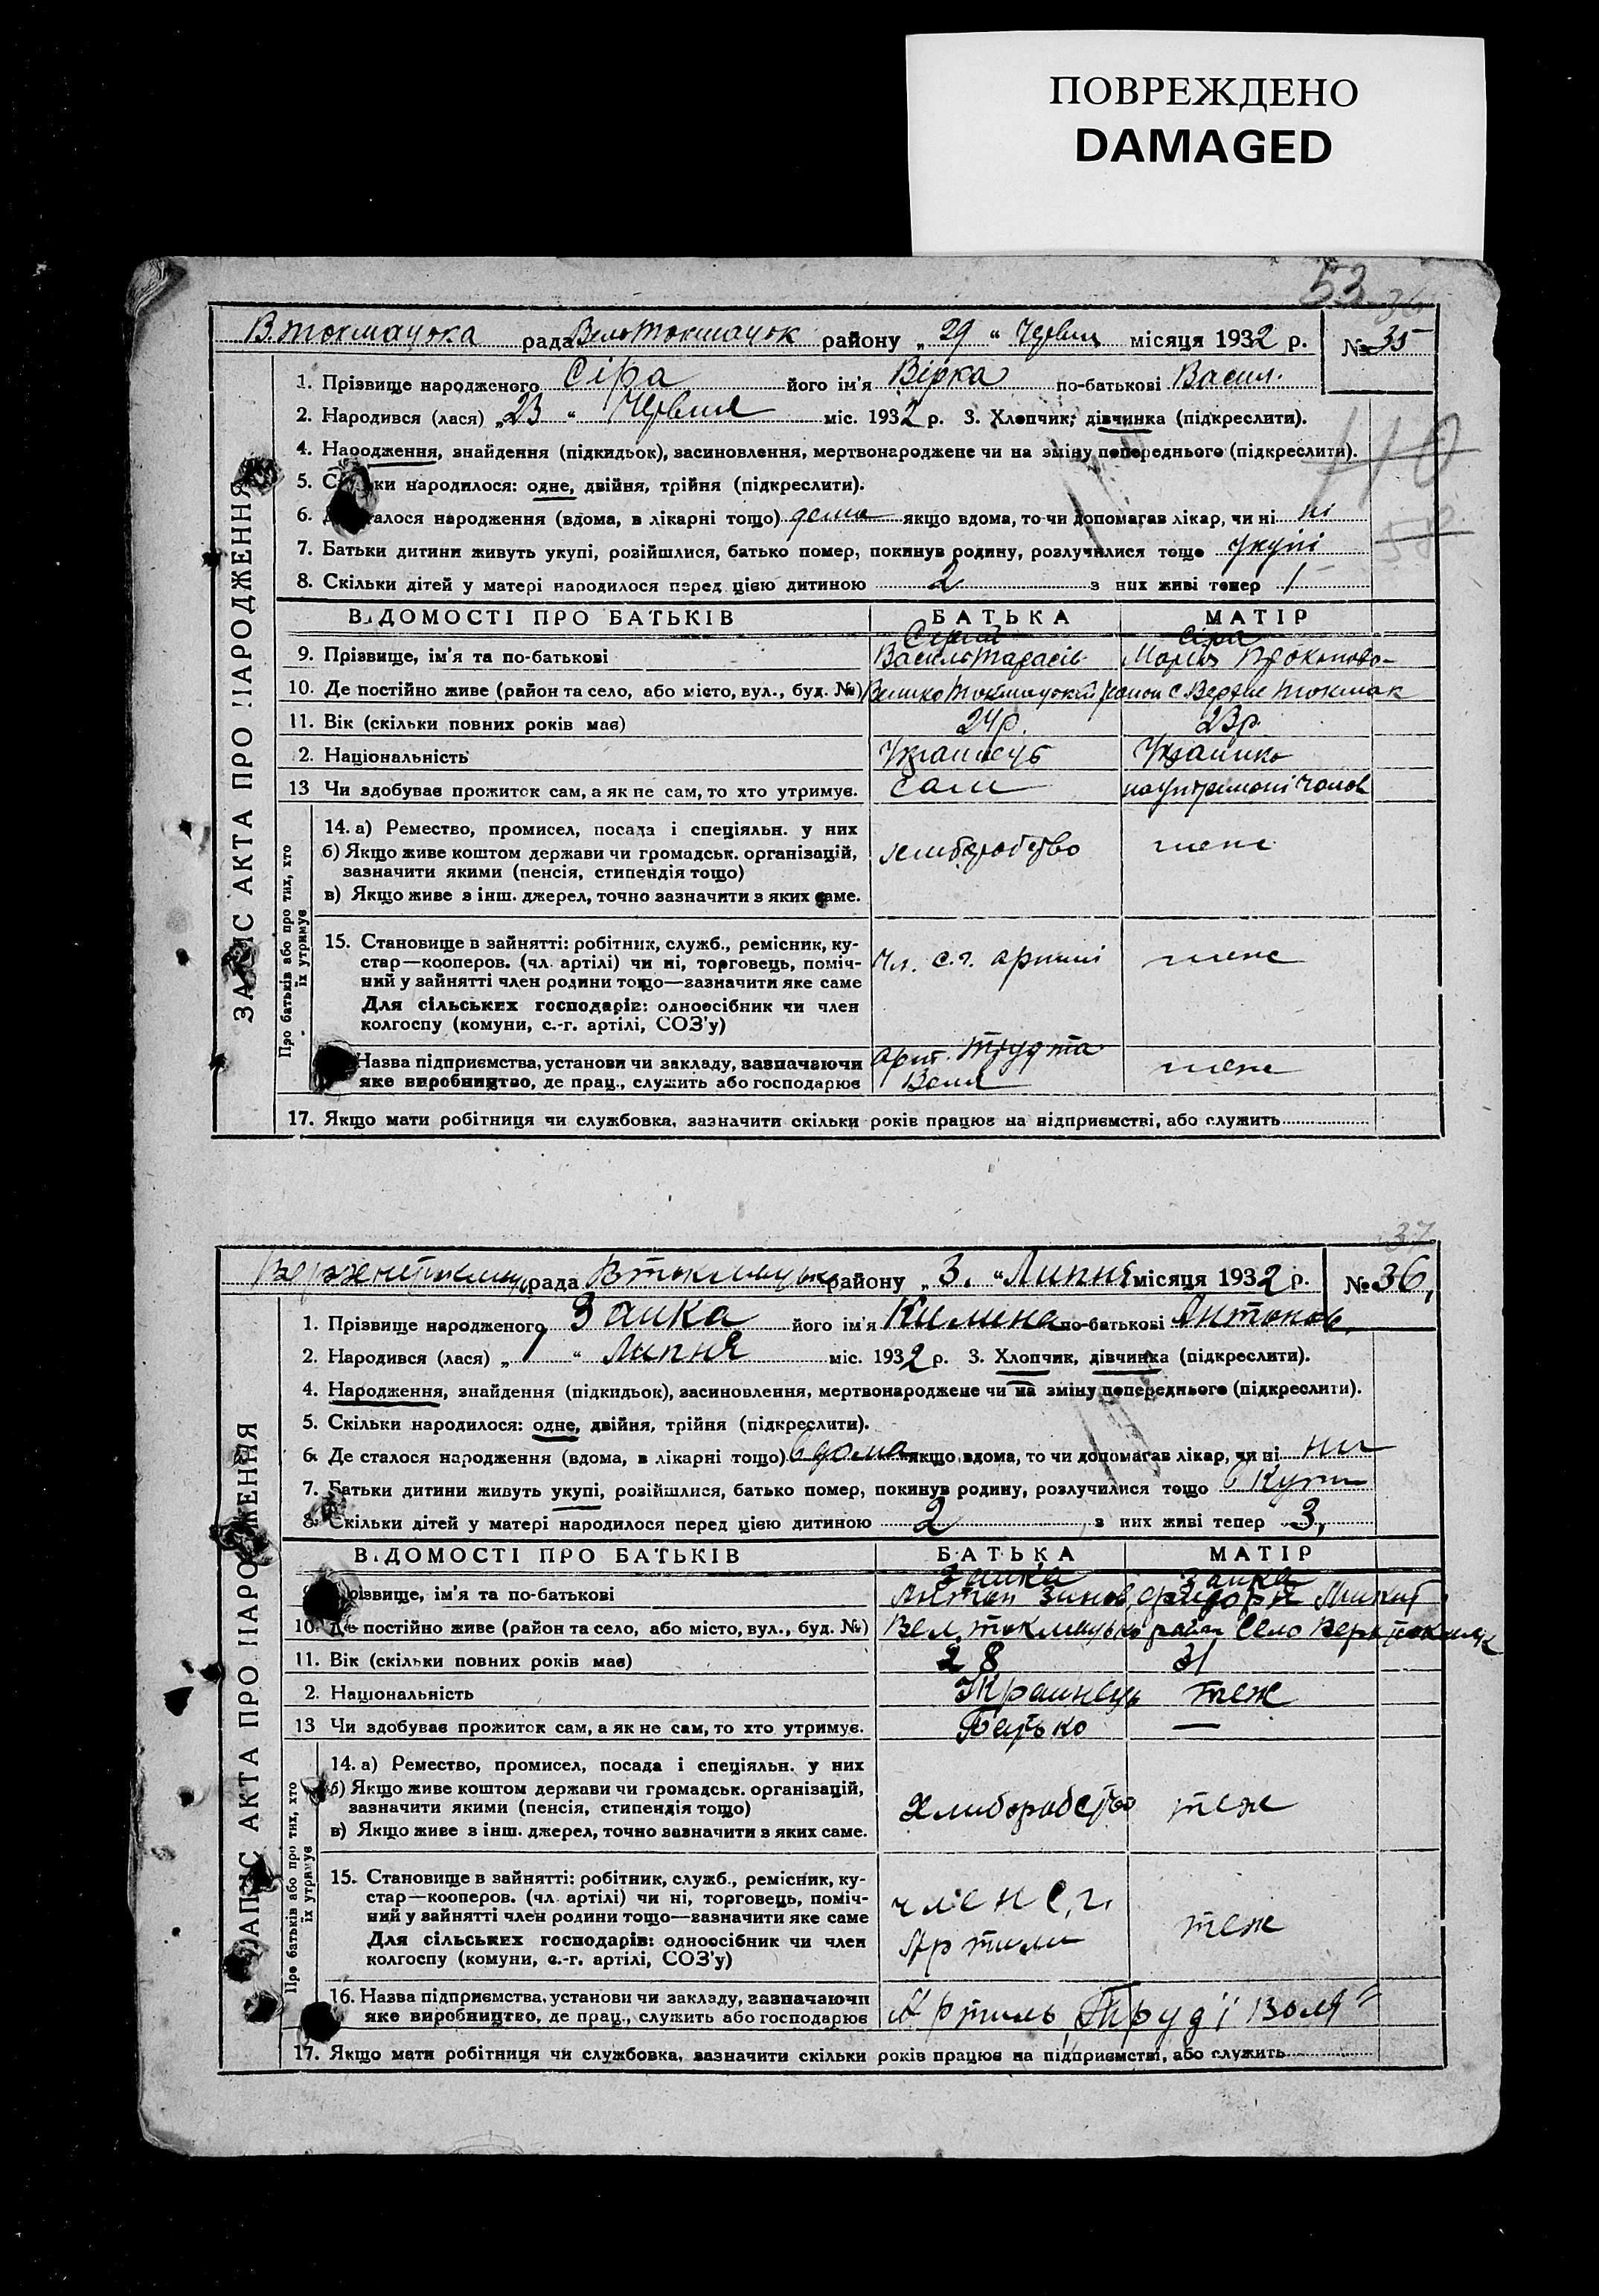 ПОВРЕЖДЕНО
DAMAGED
53
36
В.токмацька рада Велотокмацьк району „ 29 “ Червня місяця 1932 р. № 35
1. Прізвище народженого Сіра його ім'я Вірка по-батькові Васил.
2. Народився (лася) „23 “ Червня міс. 1932 р. 3. Хлопчик, дівчинка (підкреслити).
4. Народження, знайдення (підкидьок), засиновлення, мертвонароджене чи на зміну попереднього (підкреслити).
110
5. Скільки народилося: одне, двійня, трійня (підкреслити).
6. Де сталося народження (вдома, в лікарні тощо) дома якщо вдома, то чи допомагав лікар, чи ні ні
58
7. Батьки дитини живуть укупі, розійшлися, батько помер, покинув родину, розлучилися тощо укупі
8. Скільки дітей у матері народилося перед цією дитиною 2 з них живі тепер 1
ВІДОМОСТІ ПРО БАТЬКІВ БАТЬКА МАТІР
Сірий Сіра
9. Прізвище, ім'я та по-батькові Василь Тарасів Марія Прокопово-
10. Де постійно живе (район та село, або місто, вул., буд. №) Велико Токмацький район с Верхне Токмак
11. Вік (скільки повних років має) 24р. 23р.
2. Національність Українець Українка
13 Чи здобуває прожиток сам, а як не сам, то хто утримує. сам на утримані чолов
14. а) Ремество, промисел, посада і спеціяльн. у них
б) Якщо живе коштом держави чи громадськ. організацій, хлиборобство теже
зазначити якими (пенсія, стипендія тощо)
в) Якщо живе з інш. джерел, точно зазначити з яких саме.
15. Становище в зайнятті: робітник, служб., ремісник, ку-
стар—кооперов. (чл. артілі) чи ні, торговець, поміч- Чл. с.г. артилі теже
ний у зайнятті член родини тощо—зазначити яке саме
Для сільських господарів: одноосібник чи член
колгоспу (комуни, с.-г. артілі, СОЗ'у)
Назва підприємства, установи чи закладу, зазначаючи арт. Труд та теже
яке виробництво, де прац., служить або господарює Воля
17. Якщо мати робітниця чи службовка, зазначити скільки років працює на підприємстві, або служить
ЗАПИС АКТА ПРО НАРОДЖЕННЯ
Про батьків або про тих, хто
їх утримує
37
Верхнетокмац рада Втокмацько району „ 3. “ Липня місяця 1932 р. № 36,
1. Прізвище народженого Заика його ім'я Килина по-батькові Антонов.
2. Народився (лася) „ 1 “ Липня міс. 1932 р. 3. Хлопчик, дівчинка (підкреслити).
4. Народження, знайдення (підкидьок), засиновлення, мертвонароджене чи на зміну попереднього (підкреслити).
5. Скільки народилося: одне, двійня, трійня (підкреслити).
6. Де сталося народження (вдома, в лікарні тощо) вдома якщо вдома, то чи допомагав лікар, чи ні ни
7. Батьки дитини живуть укупі, розійшлися, батько помер, покинув родину, розлучилися тощо вкупи
8. Скільки дітей у матері народилося перед цією дитиною 2 з них живі тепер 3,
ВІДОМОСТІ ПРО БАТЬКІВ БАТЬКА МАТІР
Заика Заика
Прізвище, ім'я та по-батькові Антон Зинов. Микит
10. Де постійно живе (район та село, або місто, вул., буд. №) Вел. токмацько район Село Верх токмак
11. Вік (скільки повних років має) 28 31
2. Національність Украинець теж
13 Чи здобуває прожиток сам, а як не сам, то хто утримує. Батько —
14. а) Ремество, промисел, посада і спеціяльн. у них
б) Якщо живе коштом держави чи громадськ. організацій,
зазначити якими (пенсія, стипендія тощо) Хлиборобство теж
в) Якщо живе з інш. джерел, точно зазначити з яких саме.
15. Становище в зайнятті: робітник, служб., ремісник, ку-
стар—кооперов. (чл. артілі) чи ні, торговець, поміч- член с,г,
ний у зайнятті член родини тощо—зазначити яке саме теж
Для сільських господарів: одноосібник чи член Артили
колгоспу (комуни, с.-г. артілі, СОЗ'у)
16. Назва підприємства, установи чи закладу, зазначаючи Артиль „Труд і воля“
яке виробництво, де прац., служить або господарює
17. Якщо мати робітниця чи службовка, зазначити скільки років працює на підприємстві, або служить
ЗАПИС АКТА ПРО НАРОДЖЕННЯ
Про батьків або про тих, хто
їх утримує